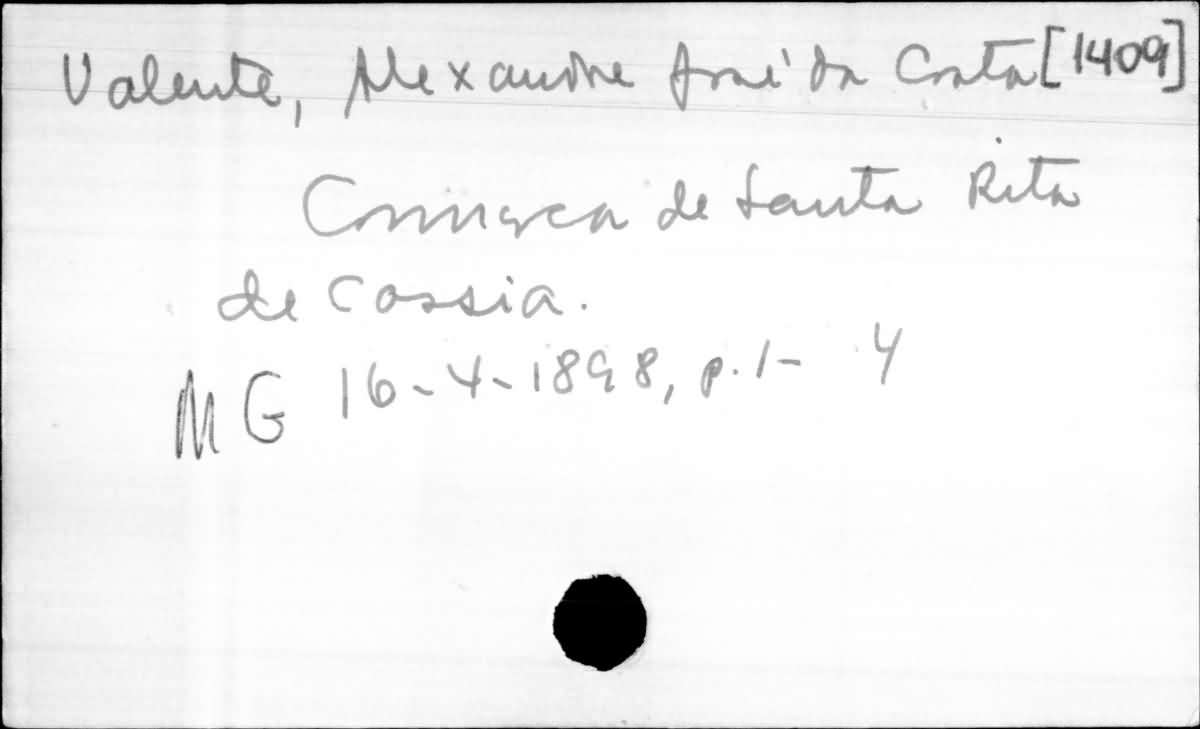 Valente, Alexandre José da Costa [1409]
Comarca de Santa Rita
de Cassia.
MG 16-4-1898, p. 1- 4